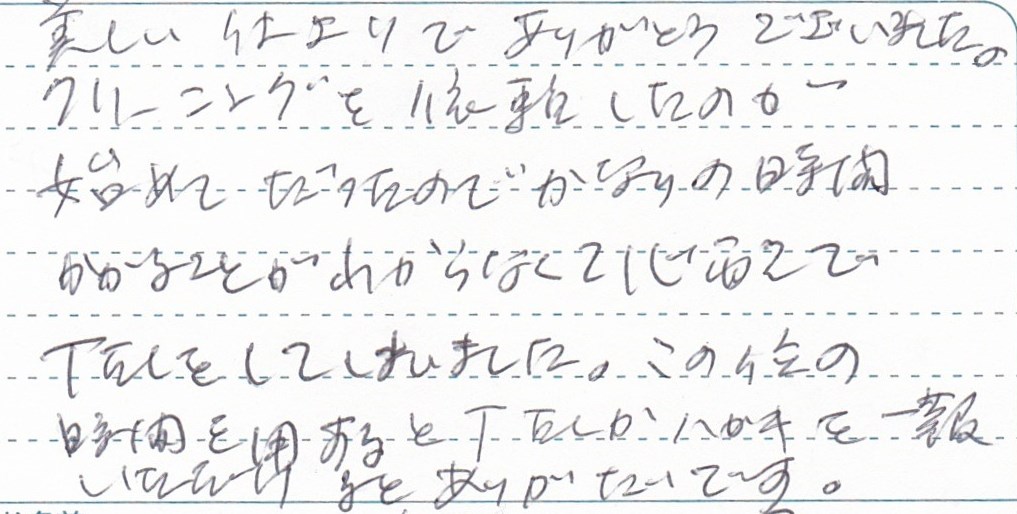 美しい仕上りでありがとうございました。
クリーニングを依頼したのが
始めてだったのでかなりの時間
かかることがわからなくて心配で
TELをしてしまいました。この位の
時間を用すると TELかハガキを一報
いただけるとありがたいです。